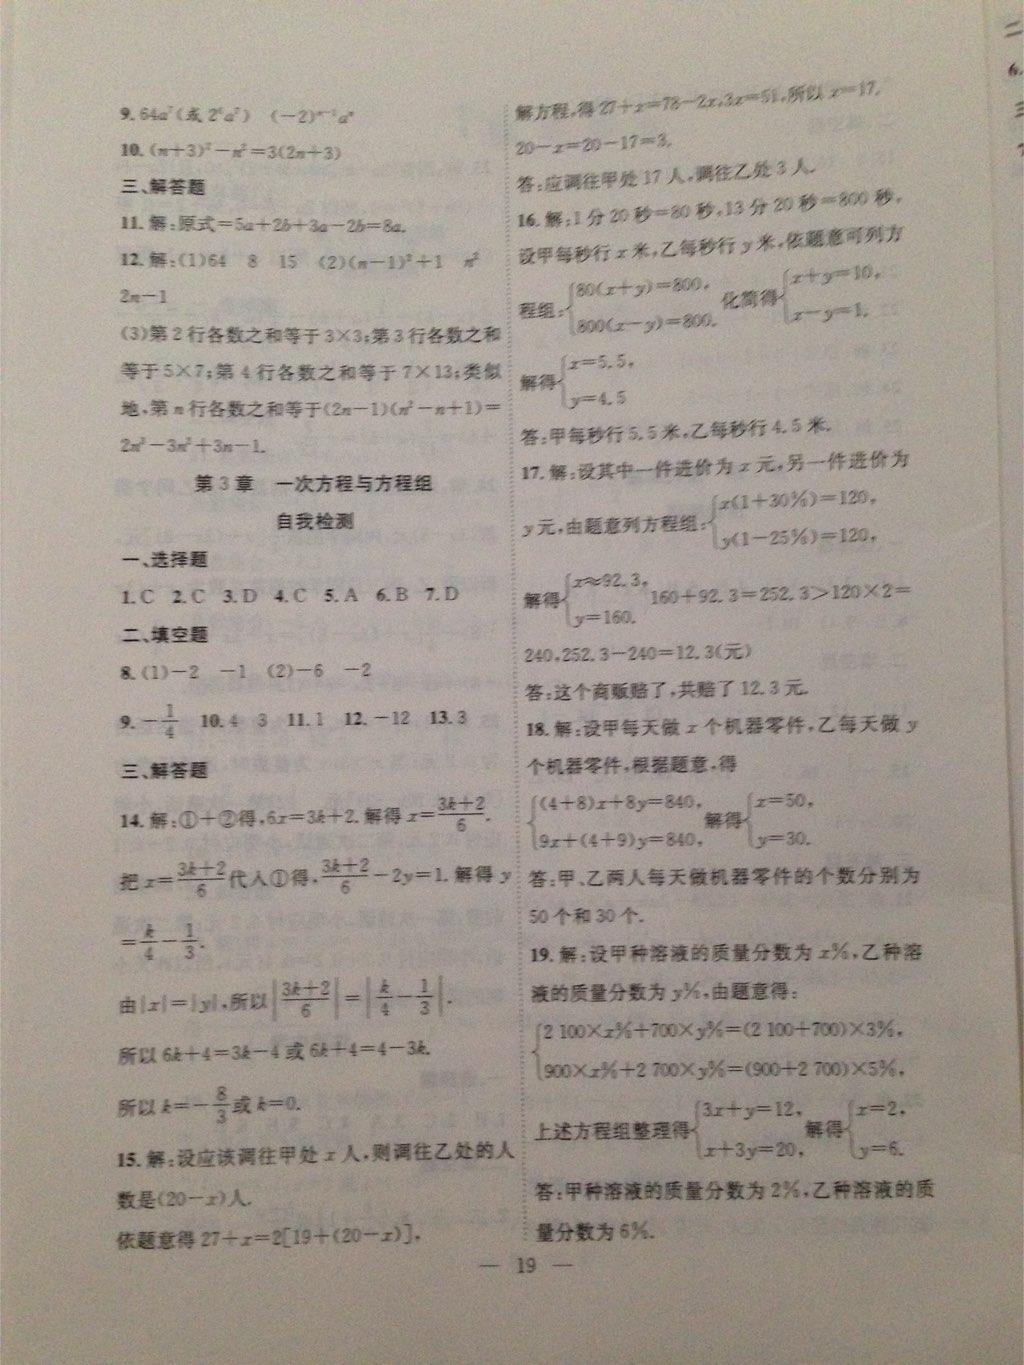 9. 64a⁷(或 2⁶a⁷) (-2)ⁿ⁻¹aⁿ
10. (n+3)²-n²=3(2n+3)
三、解答题
11. 解:原式=5a+2b+3a-2b=8a.
12. 解:(1)64 8 15 (2)(n-1)²+1 n²
2n-1
(3)第 2 行各数之和等于 3×3;第 3 行各数之和
等于 5×7;第 4 行各数之和等于 7×13;类似
地,第 n 行各数之和等于(2n-1)(n²-n+1)=
2n³-3n²+3n-1.
第 3 章 一次方程与方程组
自我检测
一、选择题
1. C 2. C 3. D 4. C 5. A 6. B 7. D
二、填空题
8. (1)-2 -1 (2)-6 -2
9. -1/4 10. 4 3 11. 1 12. -12 13. 3
三、解答题
14. 解:①+②得,6x=3k+2. 解得 x=(3k+2)/6.
把 x=(3k+2)/6 代入①得,(3k+2)/6-2y=1. 解得 y
=k/4-1/3.
由|x|=|y|,所以|(3k+2)/6|=|k/4-1/3|.
所以 6k+4=3k-4 或 6k+4=4-3k.
所以 k=-8/3 或 k=0.
15. 解:设应该调往甲处 x 人,则调往乙处的人
数是(20-x)人.
依题意得 27+x=2[19+(20-x)],
解方程,得 27+x=78-2x,3x=51,所以 x=17.
20-x=20-17=3.
答:应调往甲处 17 人,调往乙处 3 人.
16. 解:1 分 20 秒=80 秒,13 分 20 秒=800 秒,
设甲每秒行 x 米,乙每秒行 y 米,依题意可列方
程组:{80(x+y)=800, 800(x-y)=800. 化简得{x+y=10, x-y=1.
解得{x=5.5, y=4.5
答:甲每秒行 5.5 米,乙每秒行 4.5 米.
17. 解:设其中一件进价为 x 元,另一件进价为
y 元,由题意列方程组:{x(1+30%)=120, y(1-25%)=120,
解得{x≈92.3, y=160. 160+92.3=252.3>120×2=
240,252.3-240=12.3(元)
答:这个商贩赔了,共赔了 12.3 元.
18. 解:设甲每天做 x 个机器零件,乙每天做 y
个机器零件,根据题意,得
{(4+8)x+8y=840, 9x+(4+9)y=840, 解得{x=50, y=30.
答:甲、乙两人每天做机器零件的个数分别为
50 个和 30 个.
19. 解:设甲种溶液的质量分数为 x%,乙种溶
液的质量分数为 y%,由题意得:
{2 100×x%+700×y%=(2 100+700)×3%, 900×x%+2 700×y%=(900+2 700)×5%,
上述方程组整理得{3x+y=12, x+3y=20, 解得{x=2, y=6.
答:甲种溶液的质量分数为 2%,乙种溶液的质
量分数为 6%.
— 19 —